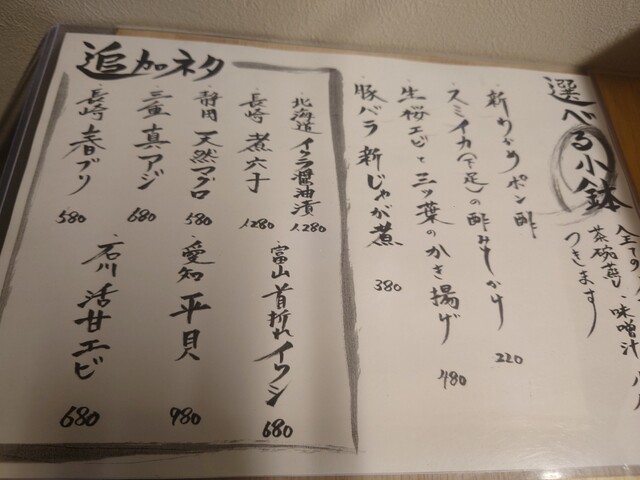 選べる小鉢
茶碗蒸し・味噌汁
つきます
・新わかめポン酢
・スミイカ(下足)の酢みそかけ 220
・生桜エビと三ッ葉のかき揚げ 480
・豚バラ新じゃが煮 380
追加ネタ
・北海道 イクラ醤油漬 1,280
・長崎 煮穴子 1,280
・静岡 天然マグロ 580
・三重 真アジ 680
・長崎 春ブリ 580
・富山 首折れイワシ 680
・愛知 平貝 980
・石川 活甘エビ 680